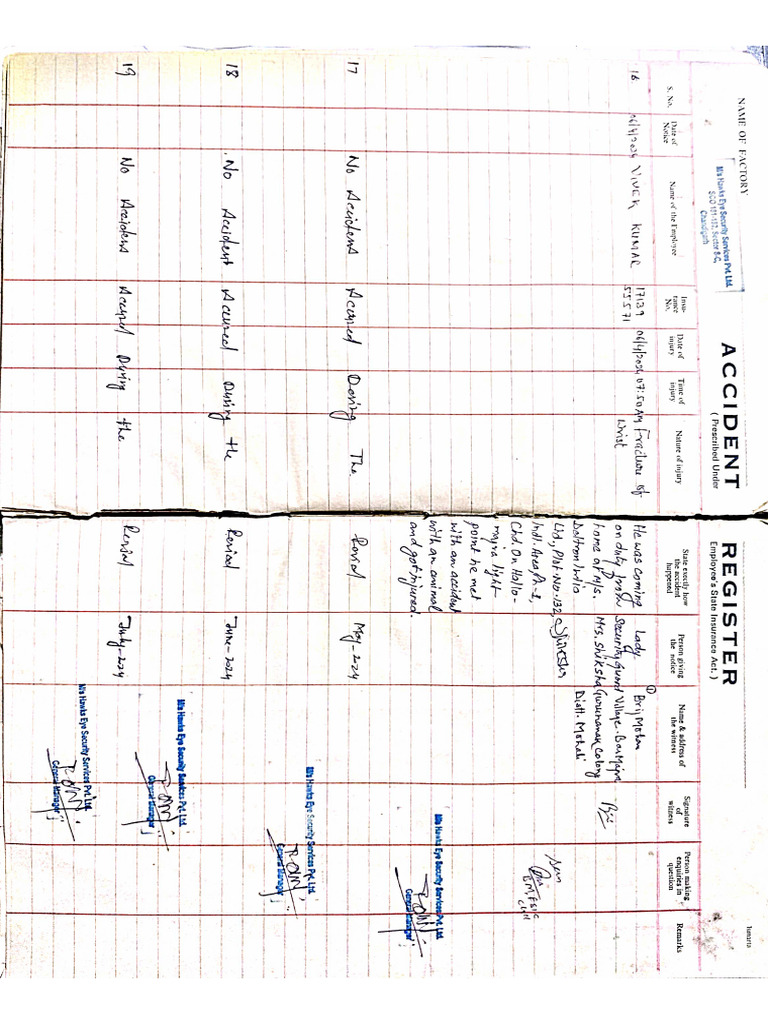 NAME OF FACTORY
M/s Hawks Eye Security Services Pvt. Ltd.
SCO 191-192, Sector 8-C,
Chandigarh
ACCIDENT REGISTER
( Prescribed Under Employee's State Insurance Act. )
S. No.
Date of Notice
Name of the Employee
Insurance No.
Date of injury
Time of injury
Nature of injury
State exactly how the accident happened
Person giving the notice
Name & address of the witness
Signature of witness
Person making enquiries in question
Remarks
16
06/4/2024
VIVEK KUMAR
17139
55571
06/4/2024
07:50 AM
Fracture of
Wrist
He was coming
on duty from
home at M/s.
Ltd., Plot No. 132,
Indl. Area Ph-1,
Chd. On Hallo-
majra light
point he met
with an accident
with an animal
and got injured.
Lady
Security Guard
Mrs. Shiksha
① Brij Mohan
Village. Bar Majra
Gurunanak Colony
Distt. Mohali
M/s Hawks Eye Security Services Pvt. Ltd.
General Manager
17
No Accident Accured During The
Periad
May-2024
M/s Hawks Eye Security Services Pvt. Ltd.
General Manager
18
No Accident Accured During the
Periad
June-2024
M/s Hawks Eye Security Services Pvt. Ltd.
General Manager
19
No Accident Accured During the
Periad
July-2024
M/s Hawks Eye Security Services Pvt. Ltd.
General Manager